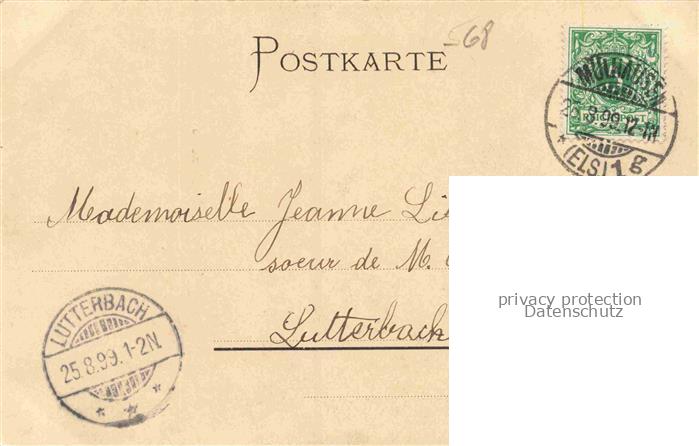 568
POSTKARTE
REICHSPOST
MÜLHAUSEN
25.8.99.12-1N
(ELS) 1 g
Mademoiselle Jeanne
soeur de M.
Lutterbach
privacy protection
Datenschutz
LUTTERBACH
25.8.99.1-2N.